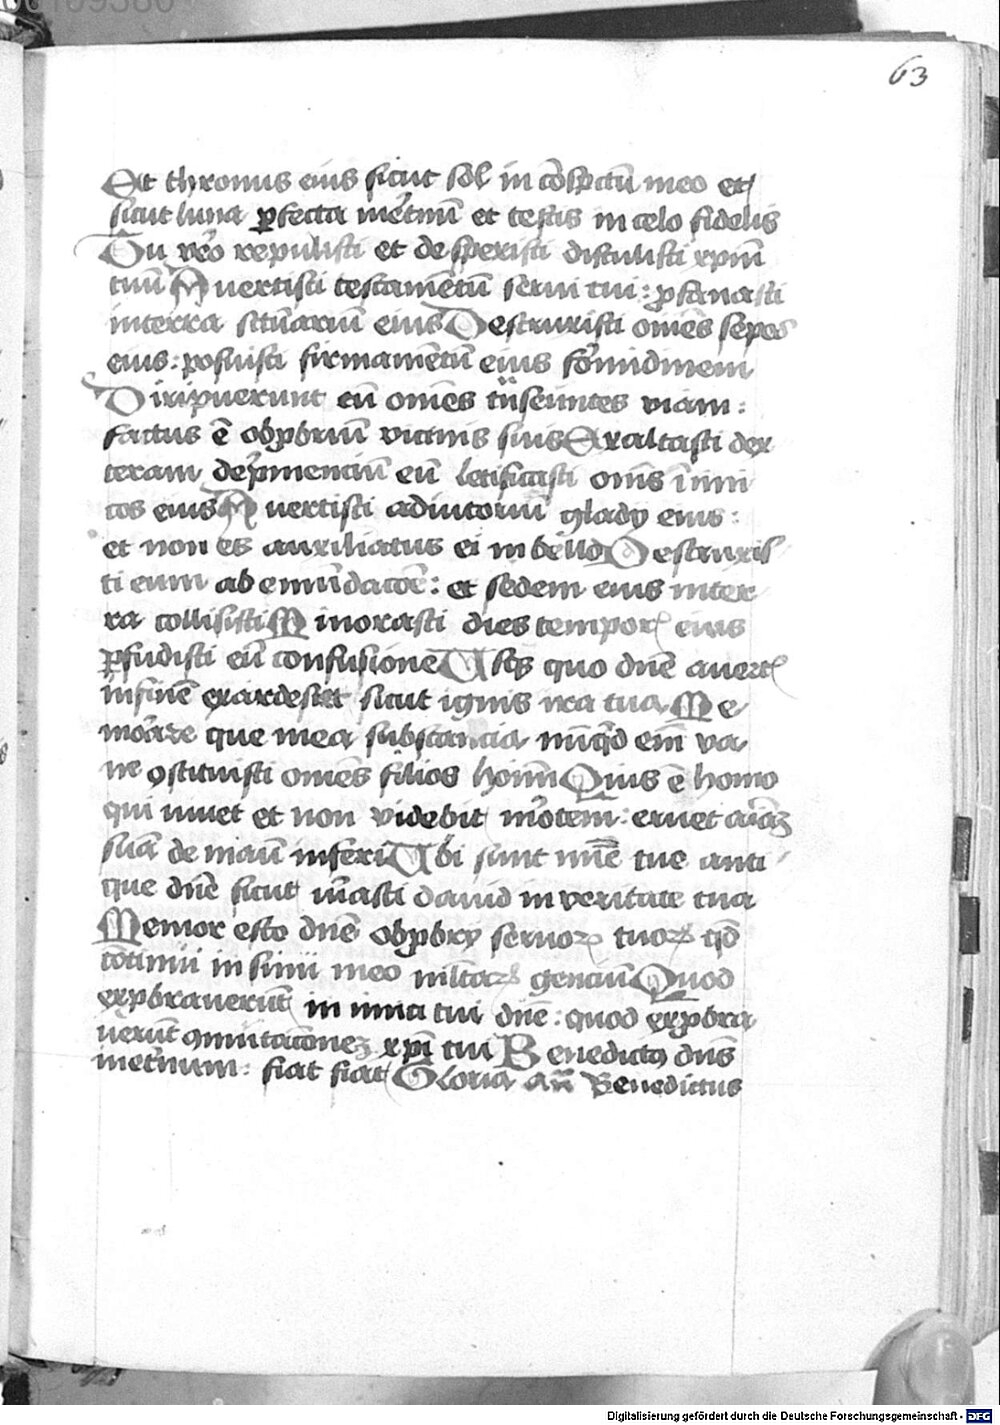 63
Et thronus eius sicut sol in cōspectū meo et
sicut luna ꝑfecta inet̉nū et testis in celo fidelis
Tu ve᷑o repulisti et desperisti distulisti xpm̄
tuū Auertisti testamētū serui tui : ꝓfanasti
interra sctūariū eius Destruxisti omēs sepes
eius : posuisti firmamētū eius formidinem
Diripuerunt eū omēs tn̄seuntes viam :
factus ē obꝓbriū vicinis suis Exaltasti dex
teram dep̄menciū eū letificasti omīs inimi
cos eius Auertisti adiutoriū glady eius :
et non es auxiliatus ei in bello Destruxis
ti eum ab emūdacōe : et sedem eius in ter
ra collisisti Minorasti dies tempor̄ eius
ꝑfudisti eū confusione Usqꝫ quo dn̄e auert̄
infinē exardescet sicut ignis ira tua Me
morare que mea substancia nūqͥd em̄ va
ne ꝯstituisti omēs filios hoīm Quis ē homo
qui viuet et non videbit mortem : eruet aīaꝫ
suā de manū inferi Ubi sunt mīe tue anti
que dn̄e sicut iurasti dauid in veritate tua
Memor esto dn̄e obꝓbry seruoꝝ tuoꝝ qd̄
cōtinui in sinu meo multaꝝ genciū Quod
exꝓbrauerūt in imici tui dn̄e : quod exꝓbra
uerūt ꝯmutacōneꝫ xpī tui Benedictꝯ dn̄s
inet̉num : fiat fiat Gloria an̄ Benedictus
Digitalisierung gefördert durch die Deutsche Forschungsgemeinschaft - DFG